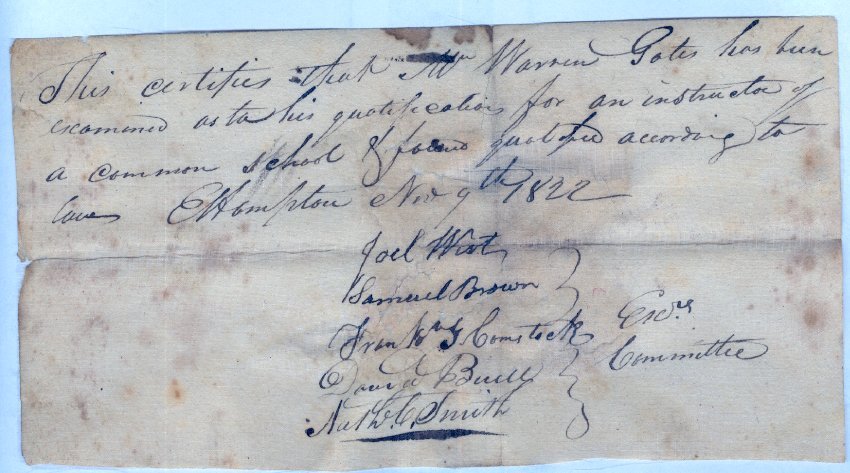 This certifies that Mr Warren Gates has been
examined as to his qualifications for an instructor of
a common school & found qualified according to
law EHampton Nov 9th 1822
Joel West
Samuel Brown
Comstock Esqrs
David Buell Committee
Nathl C. Smith